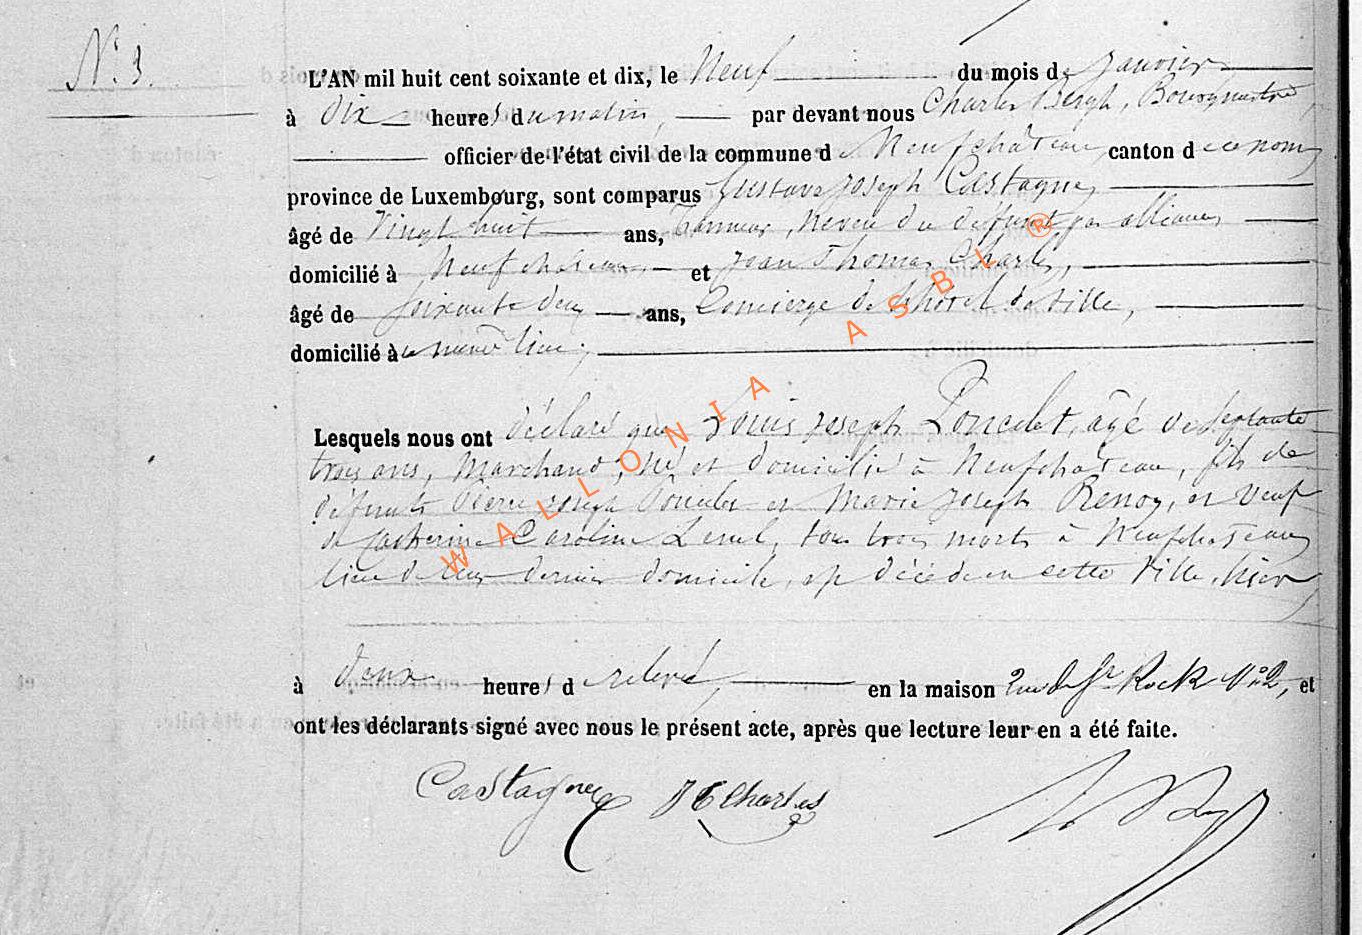 N.º 3.
L'AN mil huit cent soixante et dix, le Neuf du mois de janvier
à dix heures du matin, par devant nous Charles Bergh, Bourgmestre
officier de l'état civil de la commune de Neufchâteau, canton de ce nom,
province de Luxembourg, sont comparus Gustave Joseph Castagne,
âgé de Vingt huit ans, Tanneur, Neveu du défunt par alliance,
domicilié à Neufchâteau, et Jean Thomas Charles,
âgé de soixante deux ans, Concierge de l'hotel de Ville,
domicilié au même lieu;
Lesquels nous ont déclaré que Louis Joseph Poncelet, âgé de septante
trois ans, Marchand, né et domicilié à Neufchâteau, fils de
défunts Pierre Joseph Poncelet et Marie Joseph Renoy, et Veuf
de Catherine Caroline, tous trois morts à Neufchâteau
lieu de leur dernier domicile, est décédé en cette Ville, hier
à deux heures de relevé, en la maison Rue de St Rock Nº 2, et
ont les déclarants signé avec nous le présent acte, après que lecture leur en a été faite.
Castagne JT Charles
WALLONIA ASBL ®